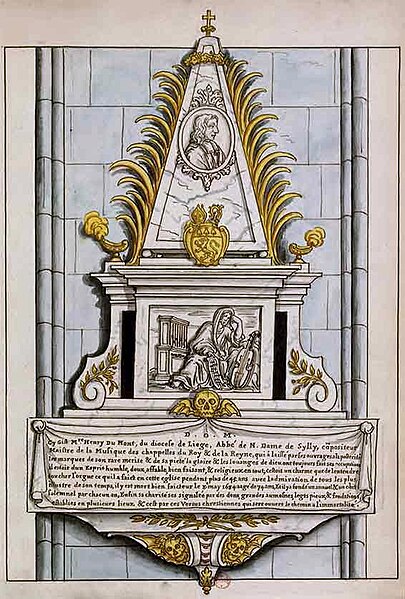 D. O. M.
Cy Gist M.re Henry Du Mont, du diocese de Liege, Abbé de N. Dame de Sylly, cōpositeur
Maistre de la Musique des chappelles du Roy & de la Reyne, qui a laissé par ses ouvrages à la postérité
les marques de son rare merite & de sa pieté la gloire & les louanges de dieu ont toujours fait ses occupations
il estoit d'un Esprit humble, doux, affable, bien faisant, & religieux en tout, cestoit un charme que de l'entendre
toucher l'orgue ce qu'il a fait en cette eglise pendant plus de 45 ans avec l'admiration de tous les plus
illustre de son temps, il y est mort le 8 may 1684 agé de 74 ans, & il y a fondé un annuel &
solemnel par chacun an, Enfin sa charité s'est signalée par des dons, grandes aumosnes, legts pieux, & fondations
establies en plusieurs lieux, & cest par ces Vertus chrestiennes qui s'est ouvert le chemin a l'immortalité